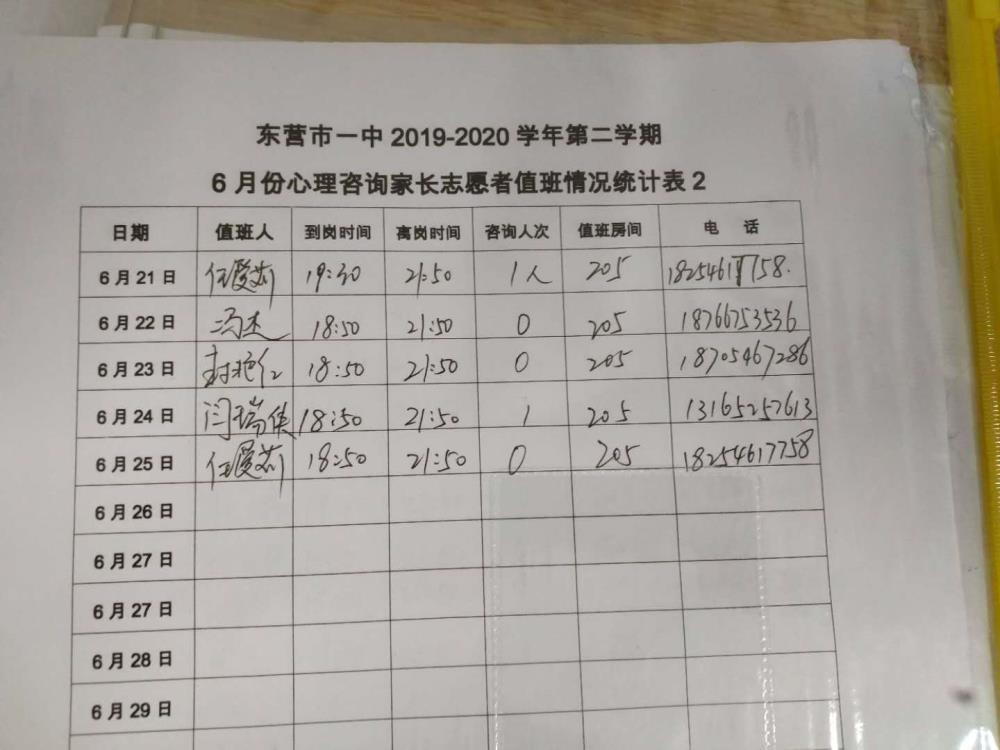 东营市一中 2019-2020 学年第二学期
6 月份心理咨询家长志愿者值班情况统计表 2
日期 值班人 到岗时间 离岗时间 咨询人次 值班房间 电 话
6 月 21 日 任爱莉 19:30 21:50 1人 205 18254617758.
6 月 22 日 冯杰 18:50 21:50 0 205 18766753536
6 月 23 日 18:50 21:50 0 205 18705467286
6 月 24 日 闫瑞侠 18:50 21:50 1 205 13165257613
6 月 25 日 任爱莉 18:50 21:50 0 205 18254617758
6 月 26 日
6 月 27 日
6 月 27 日
6 月 28 日
6 月 29 日